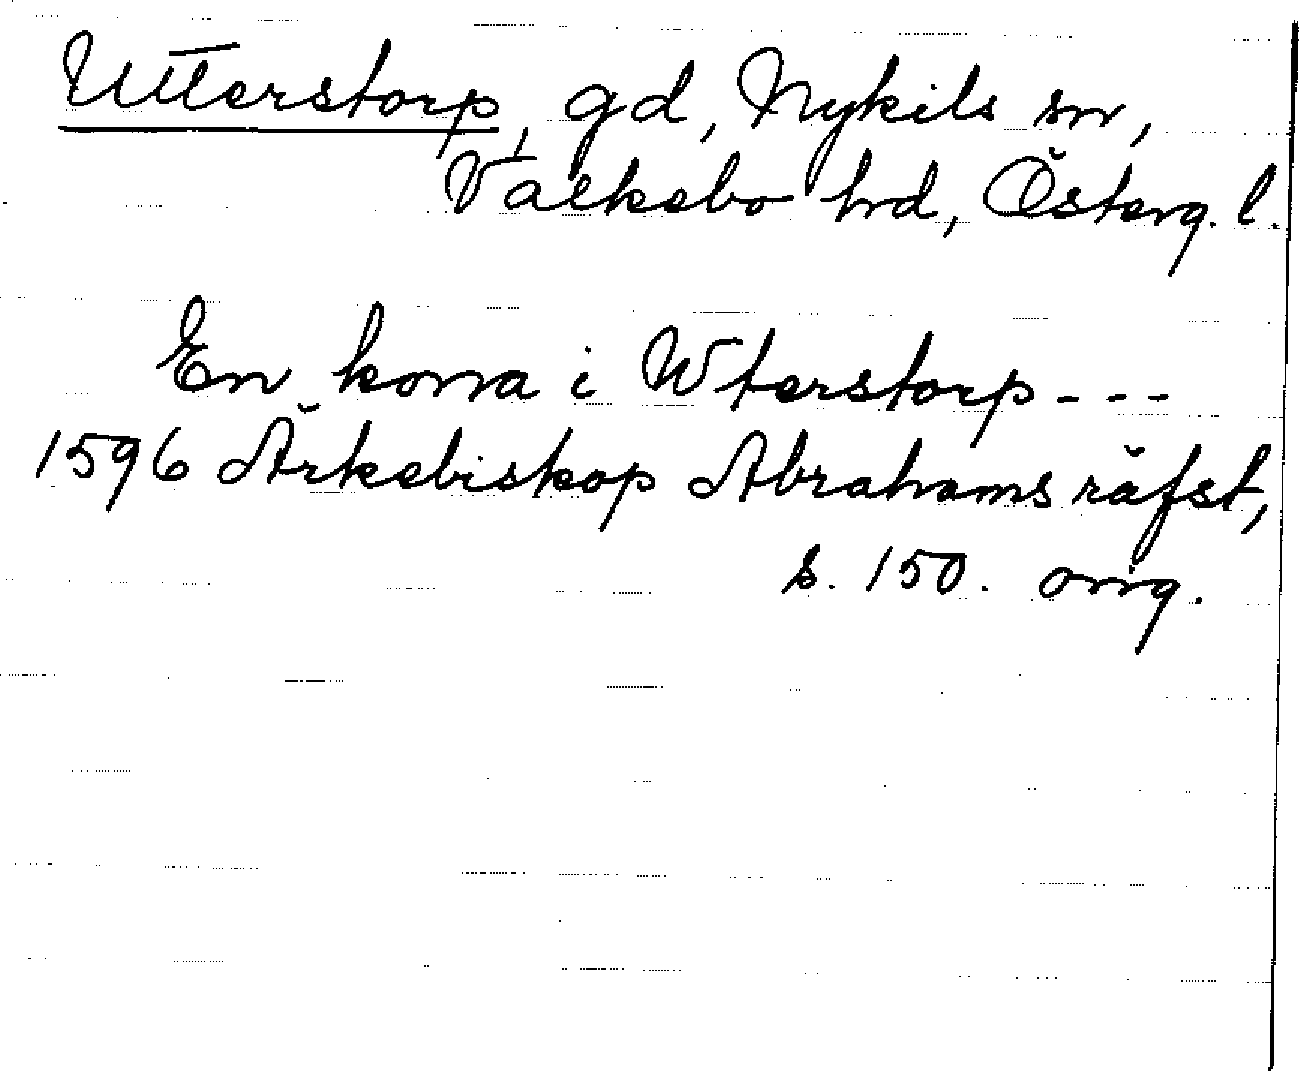 Utterstorp, gd, Nykils sn,
Valkebo hrd, Österg. l.
En kona i Wterstorp - - -
1596 Ärkebiskop Abrahams räfst,
s. 150. orig.